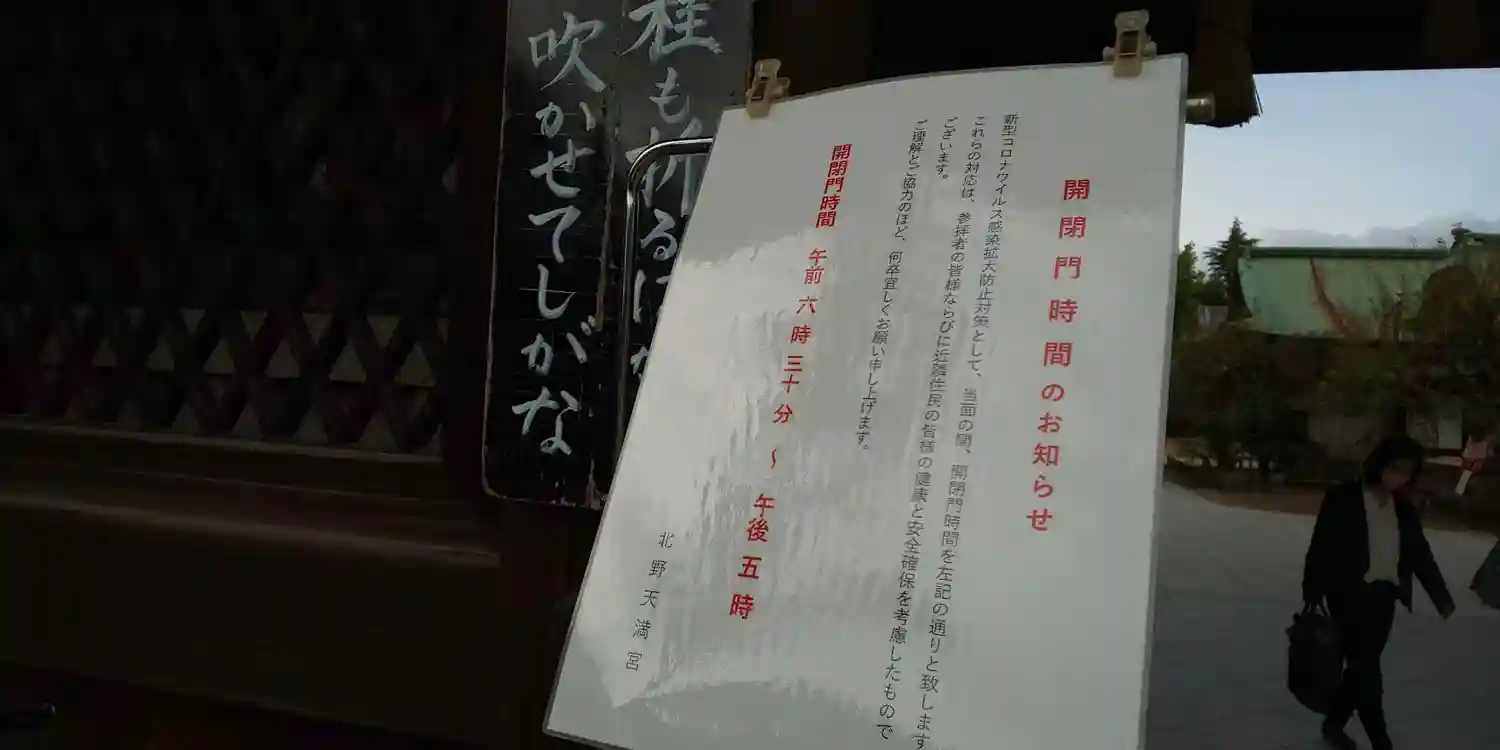 開閉門時間のお知らせ
新型コロナウイルス感染拡大防止対策として、当面の間、開閉門時間を左記の通りと致します
これらの対応は、参拝者の皆様ならびに近隣住民の皆様の健康と安全確保を考慮したもので
ございます。
ご理解とご協力のほど、何卒宜しくお願い申し上げます。
開閉門時間 午前六時三十分～午後五時
北野天満宮
も折るは
吹かせてしがな